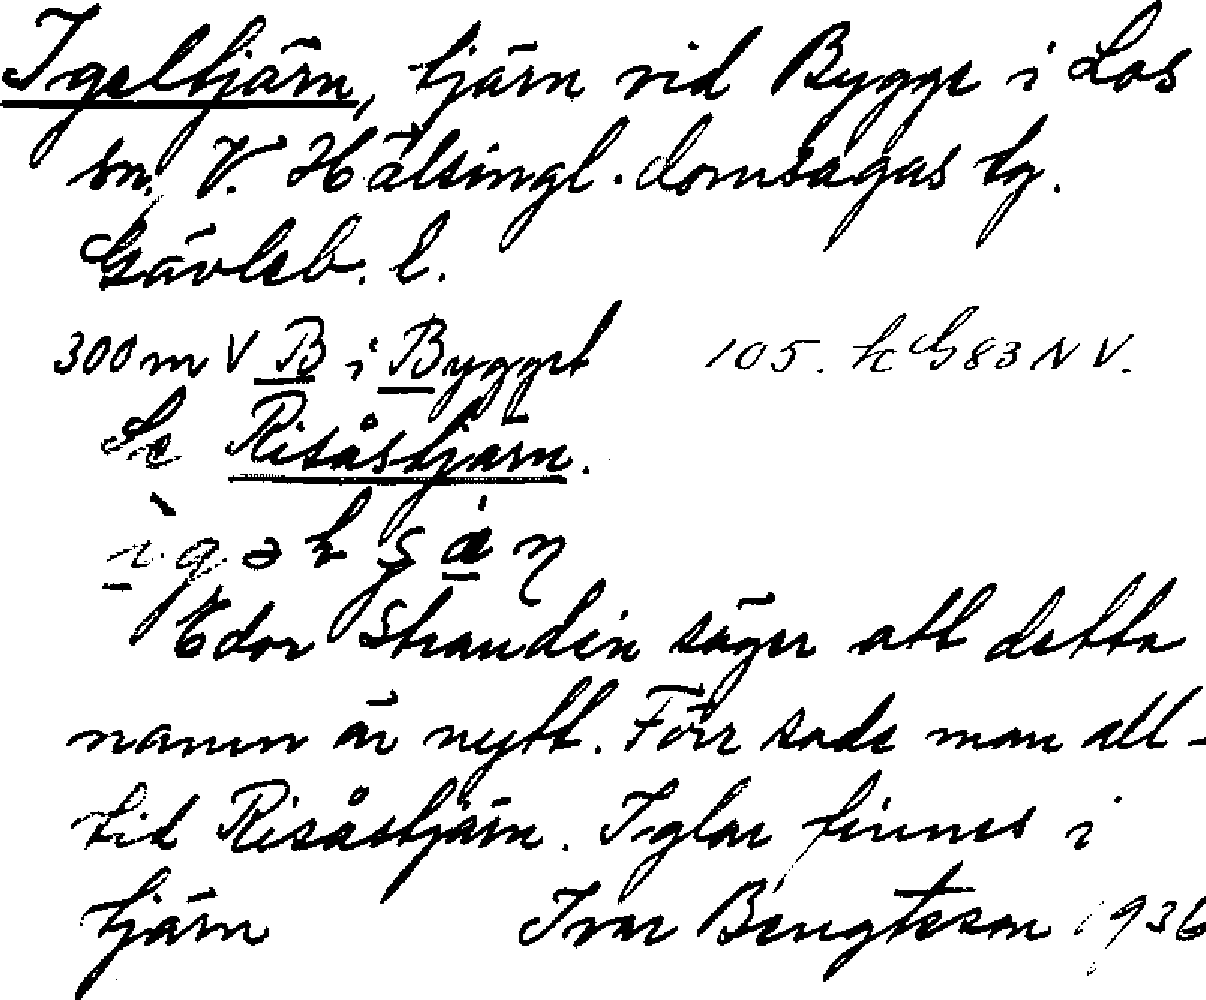 Igeltjärn, tjärn vid Bygge i Los
sn, V. Hälsingl. domsagas tg.
Gävleb. l.
300 m V B i Bygget 105. k G 83 NV.
Se Risåstjärn.
Edor Strandin säger att detta
namn är nytt. Förr sade man all-
tid Risåstjärn. Iglar finnes i
tjärn Ivar Bengtsson 1936